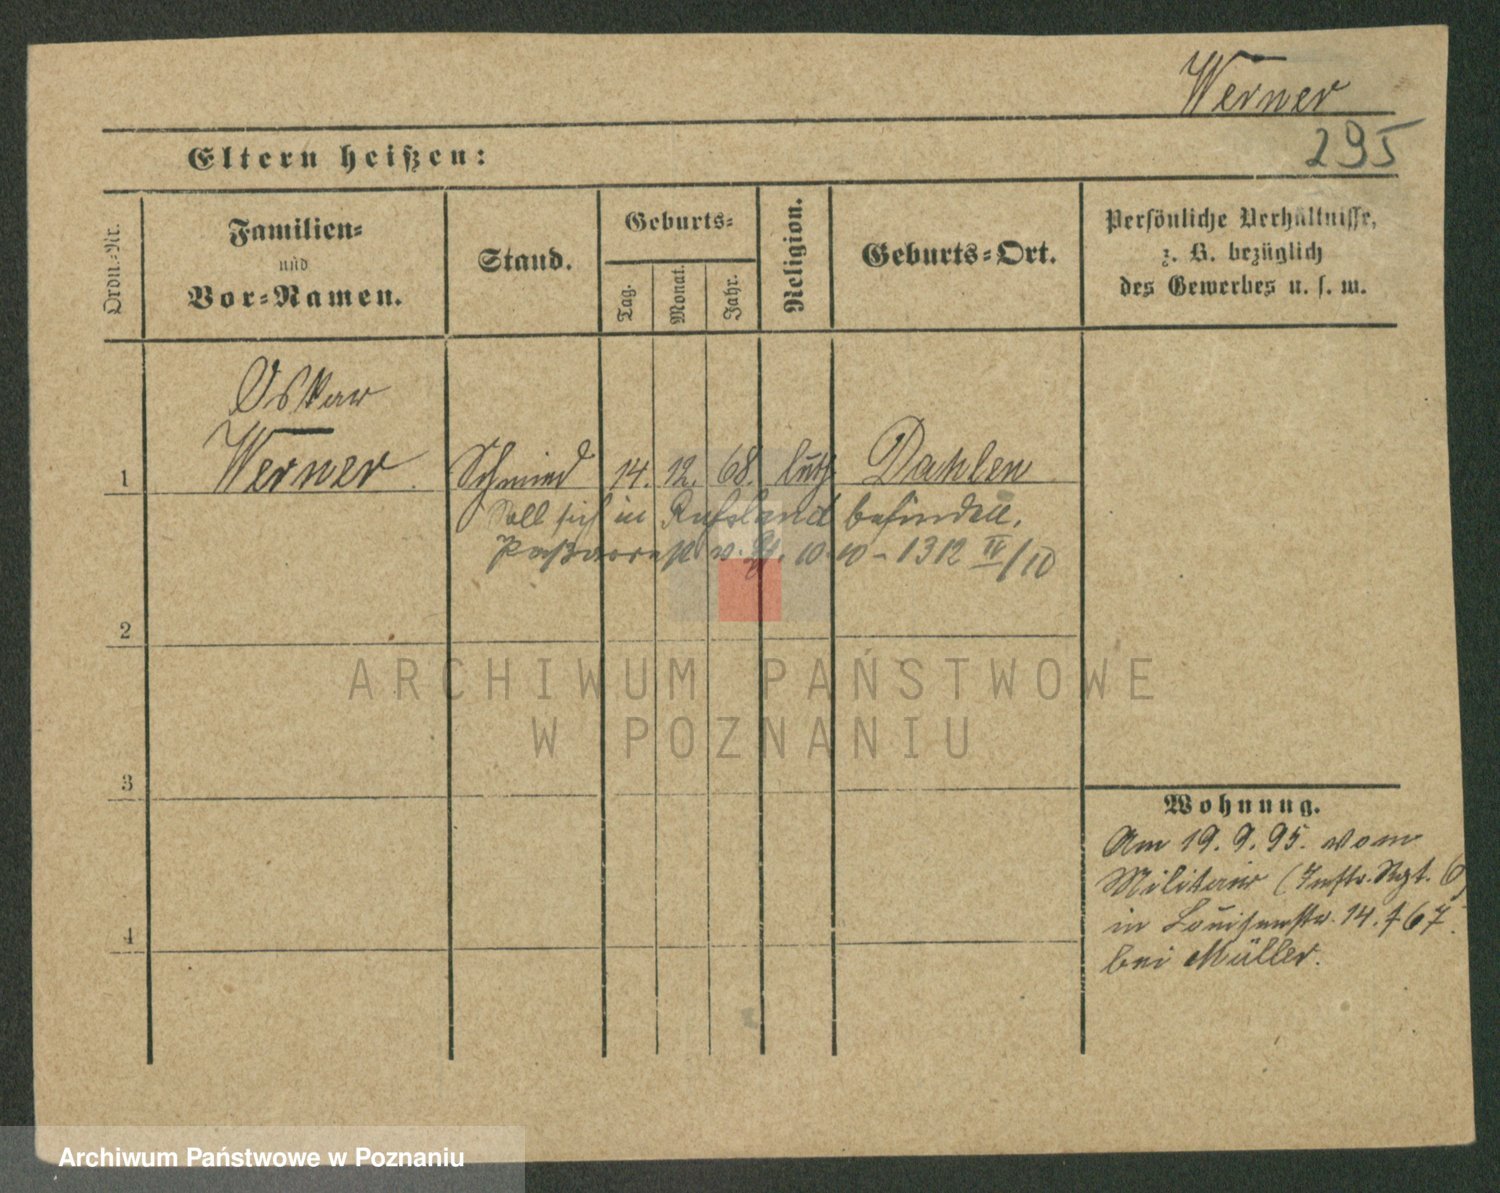 Werner
295
Eltern heißen:
Ordn.-Nr.
Familien-
und
Vor-Namen.
Stand.
Geburts-
Tag.
Monat.
Jahr.
Religion.
Geburts-Ort.
Persönliche Verhältnisse,
z. B. bezüglich
des Gewerbes u. s. w.
Oskar
1 Werner Schmied 14. 12. 68. luth Dahlen
Soll sich in Russland befinden.
v. 10. 10 - 1312 IV/10
2
3
4
Wohnung.
Am 19. 9. 95. vom
Militair (Inftr. Rgt. 6)
in Louisenstr. 14. 67.
bei Müller.
ARCHIWUM PAŃSTWOWE
W POZNANIU
Archiwum Państwowe w Poznaniu